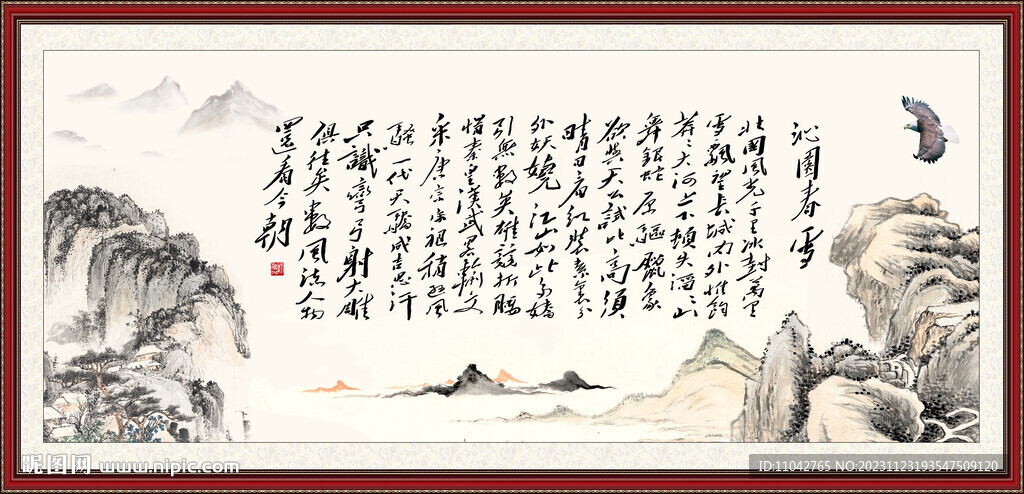 沁園春 雪
北國風光千里冰封萬里
雪飄望長城內外惟餘
莽々大河上下頓失滔々山
舞銀蛇原驅臘象
欲與天公試比高須
晴日看紅裝素裹分
外妖嬈江山如此多嬌
引無數英雄競折腰
惜秦皇漢武略輸文
采唐宗宋祖稍遜風
騷一代天驕成吉思汗
只識彎弓射大雕
俱往矣數風流人物
還看今朝
昵图网 www.nipic.com
ID:11042765 NO:20231123193547509120